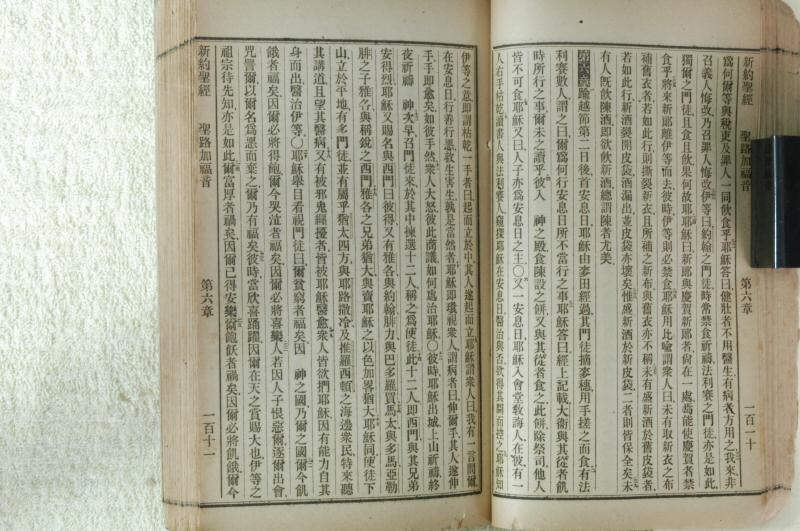 新約聖經　聖路加福音　第六章　一百一十
爲何爾等與稅吏及罪人一同飲食乎耶穌答曰健壯者不用醫生有病者方用之我來非
召義人悔改乃召罪人悔改伊等曰約翰之門徒時常禁食祈禱法利賽之門徒亦是如此
獨爾之門徒且食且飲果何故耶耶穌曰新郎與慶賀新郎者尙在一處焉能使慶賀者禁
食乎將來新郎離伊等而去彼時伊等則必禁食耶穌用比喩謂衆人曰未有取新衣之布
補舊衣者若如此行則撕裂新衣且所補之新布與舊衣亦不稱未有盛新酒於舊皮袋者
若如此行新酒裂開皮袋酒漏出並皮袋亦壞矣惟盛新酒於新皮袋二者則皆保全矣未
有人旣飲陳酒即欲飲新酒總謂陳者尤美
第六章踰越節第二日後首安息日耶穌由麥田經過其門徒摘麥穗用手搓之而食有法
利賽數人謂之曰爾爲何行安息日所不當行之事耶穌答曰經上記載大衛與其從者飢
時所行之事爾未之讀乎彼入　神之殿食陳設之餅又與其從者食之此餅除祭司他人
皆不可食耶穌又曰人子亦爲安息日之主〇又一安息日耶穌入會堂敎誨人在彼有一
人右手枯乾讀書人與法利賽人窺探耶穌在安息日醫治與否欲得其間而控之耶穌知
伊等之意即謂枯乾一手者曰起而立於中其人遂起而立耶穌謂衆人曰我有一言問爾
在安息日行善行惡救生害生孰是當然者耶穌即環視衆人謂病者曰伸爾手其人遂伸
手手即愈矣如彼手然衆人大怒彼此商議如何處治耶穌〇彼時耶穌出城上山祈禱終
夜祈禱　神次早召門徒來於其中揀選十二人稱之爲使徒此十二人即西門與其兄弟
安得烈耶穌又賜名與西門曰彼得又有雅各與約翰腓力與巴多羅買馬太與多馬亞勒
腓之子雅各與稱銳之西門雅各之兄弟猶大與賣耶穌之以色加畧猶大耶穌同使徒下
山立於平地有多門徒並有屬乎猶太四方與耶路撒冷及推羅西頓之海邊衆民特來聽
其講道且望其醫病又有被邪鬼纏擾者皆被耶穌醫愈衆人皆欲捫耶穌因有能力自其
身而出醫治伊等〇耶穌舉目看視門徒曰爾貧窮者福矣因　神之國乃爾之國爾今飢
餓者福矣因爾必將得飽爾今哭泣者福矣因爾必將喜樂人若因人子恨惡爾逐爾出會
咒詈爾以爾名爲惡而棄之爾乃有福矣彼時當欣喜踴躍因爾在天之賞賜大也伊等之
祖宗待先知亦是如此爾富厚者禍矣因爾已得安樂爾飽飫者禍矣因爾必將飢餓爾今
新約聖經　聖路加福音　第六章　一百十一